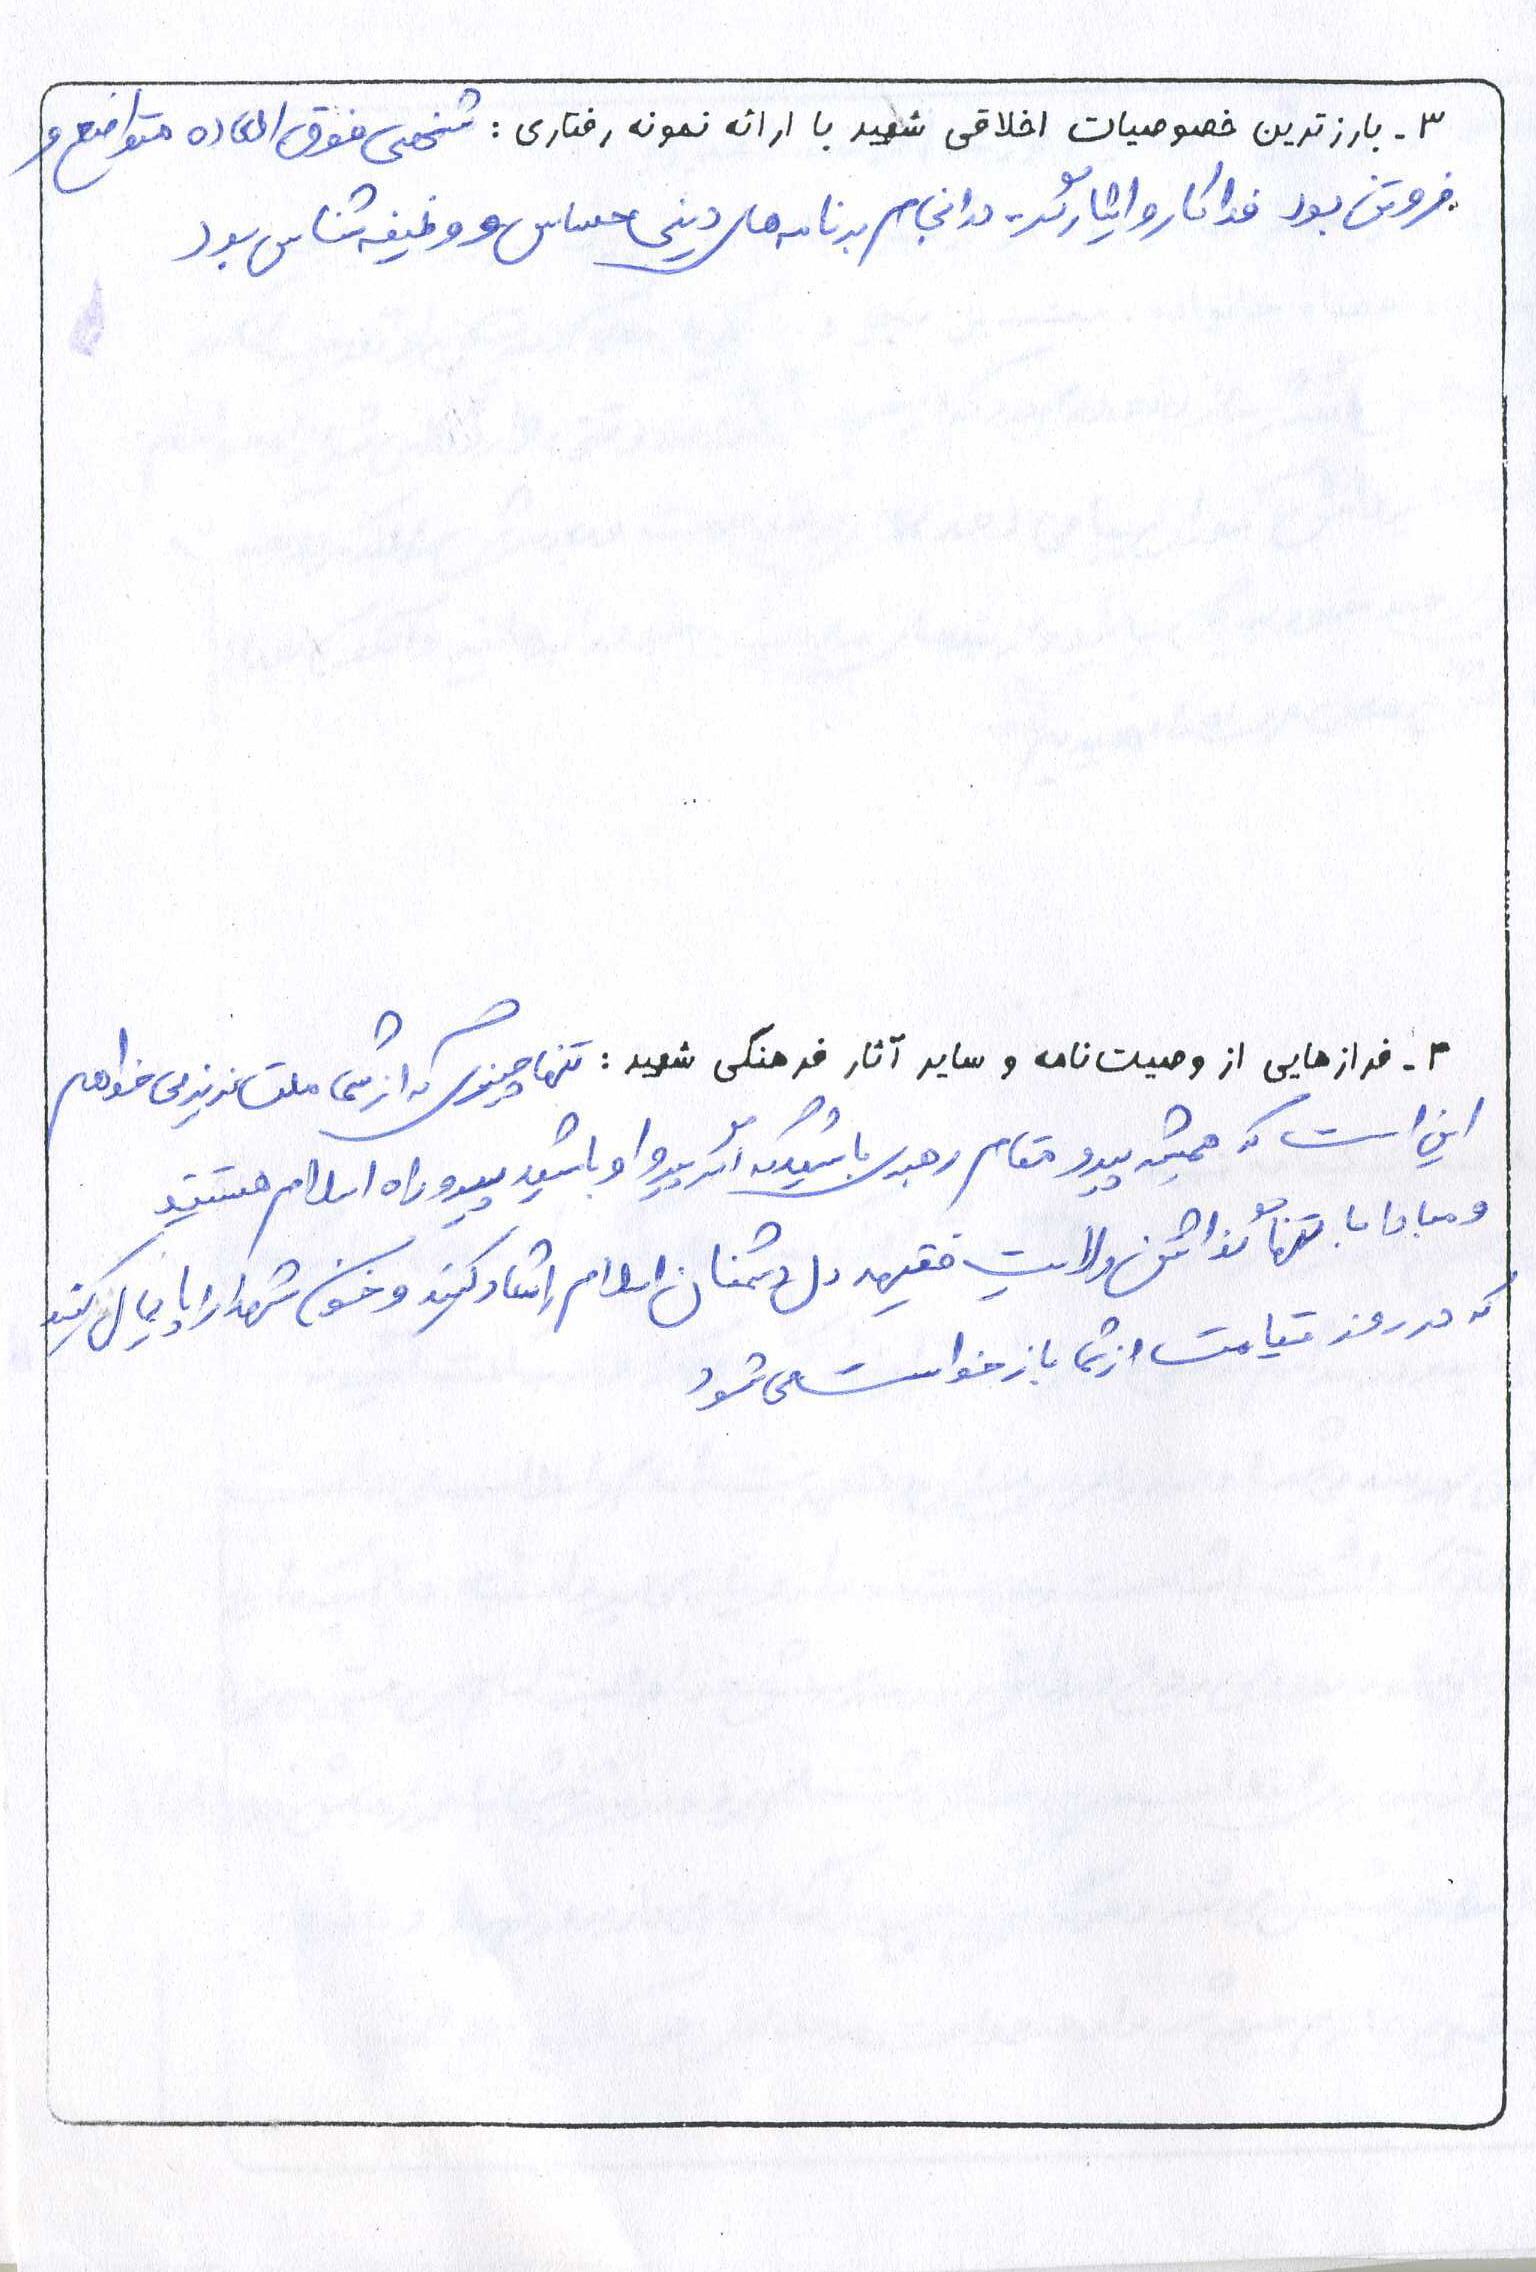 ۳- بارزترین خصوصیات اخلاقی شهید با ارائه نمونه رفتاری : شخصی فوق العاده متواضع و
فروتن بود فداکار و ایثارگر در انجام برنامه های دینی حساس و وظیفه شناس بود
۴- فرازهایی از وصیت‌نامه و سایر آثار فرهنگی شهید : تنها چیزی که از شما ملت عزیز می خواهم
این است که همیشه پیرو مقام رهبری باشید که اگر پیرو او باشید پیرو راه اسلام هستید
و مبادا با تنها گذاشتن ولایت فقیه دل دشمنان اسلام را شاد کنید و خون شهدا را پایمال کنید
که در روز قیامت از شما بازخواست می شود